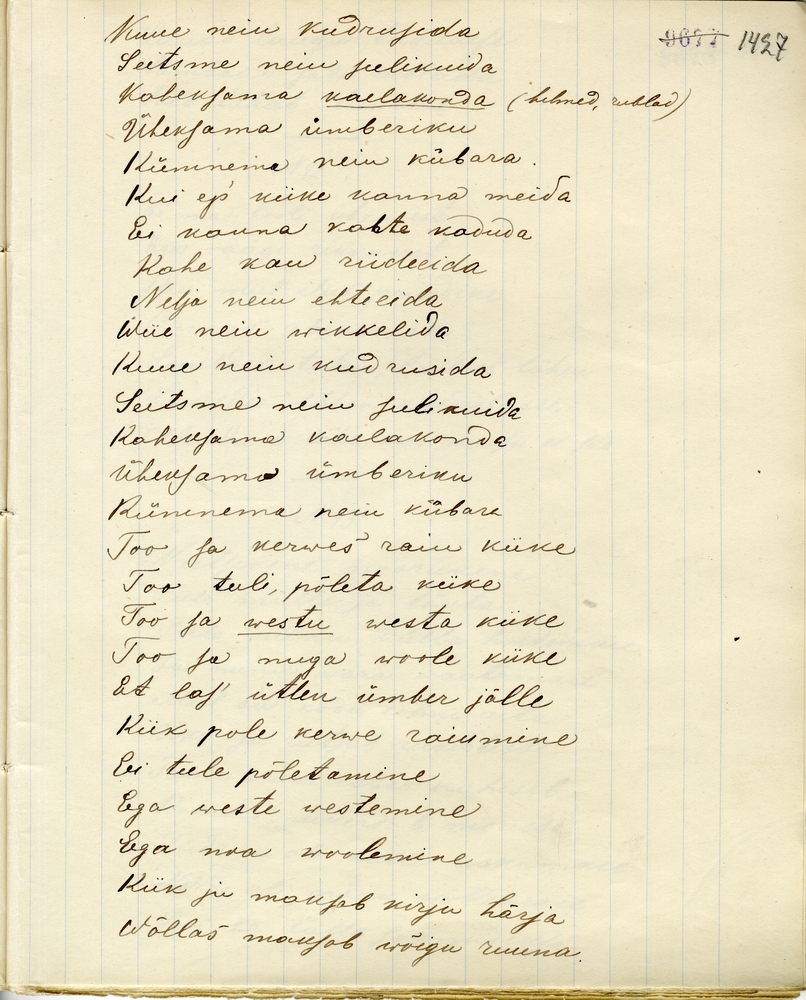 1427
Kuue neiu kudrusida
Seitsme neiu sulikuida
Kaheksama kaelakonda (helmed, rublad)
Üheksama ümberiku
Kümnema neiu kübara.
Kui ep' kiike kanna meida
Ei kanna kahte kaduda
Kahe kau riideeida
Nelja neiu ehteeida
Wiie neiu wikkelida
Kuue neiu kudrusida
Seitsme neiu sulikuida
Kaheksama kaelakonda
Üheksama ümberiku
Kümnema neiu kübara
Too sa kerwes raiu kiike
Too tuli, põleta kiike
Too sa westu westa kiike
Too sa nuga woole kiike
Et las' ütlen ümber jälle
Kiik pole kerwe raiumine
Ei tule põletamine
Ega weste westemine
Ega noa woolemine
Kiik ju maksab kirju härja
Wõllas maksab wõigu ruuna.